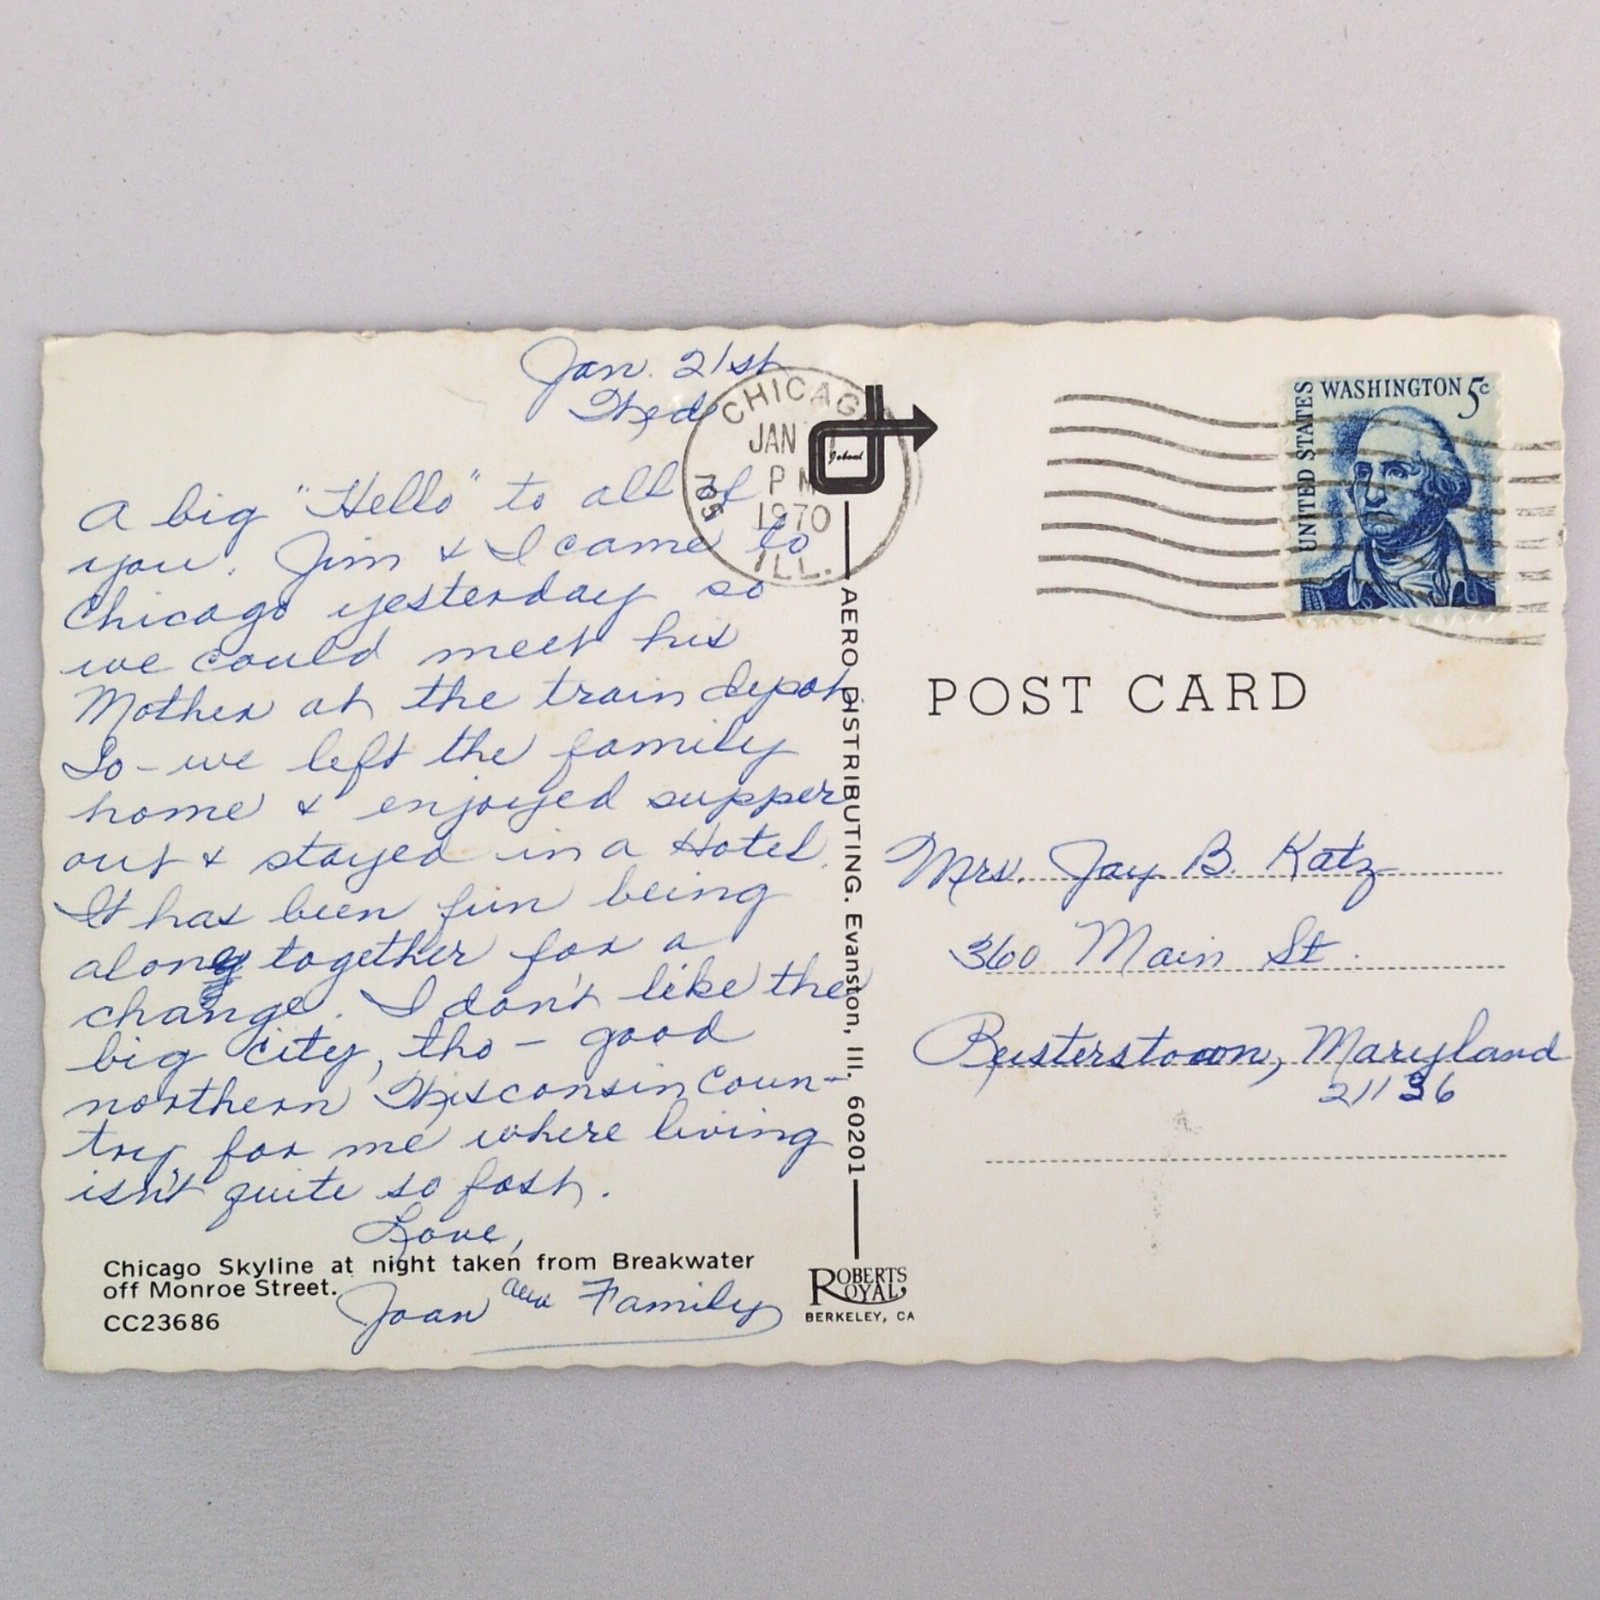 Jan. 21st
Wed
A big "Hello" to all of
you. Jim & I came to
Chicago yesterday so
we could meet his
Mother at the train depot
So - we left the family
home & enjoyed supper
out & stayed in a Hotel.
It has been fun being
along together for a
change. I don't like the
big city, tho - good
northern Wisconsin Coun-
try for me where living
isn't quite so fast.
Love,
Joan and Family
Chicago Skyline at night taken from Breakwater
off Monroe Street.
CC23686
CHICAGO
JAN
PM
1970
ILL.
AERO DISTRIBUTING. Evanston, Ill. 60201
ROBERTS
ROYAL
BERKELEY, CA
UNITED STATES
WASHINGTON 5c
POST CARD
Mrs. Jay B. Katz
360 Main St.
Reisterstown, Maryland
21136